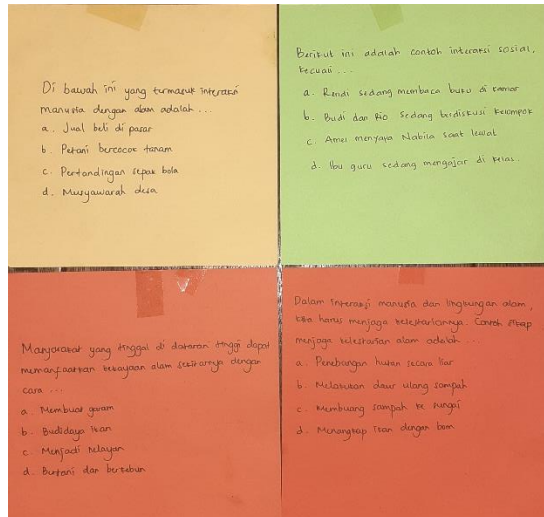 Di bawah ini yang termasuk interaksi
manusia dengan alam adalah ...
a. Jual beli di pasar
b. Petani bercocok tanam
c. Pertandingan sepak bola
d. Musyawarah desa
Berikut ini adalah contoh interaksi sosial,
kecuali ...
a. Rendi sedang membaca buku di kamar
b. Budi dan Rio sedang berdiskusi kelompok
c. Amel menyapa Nabila saat lewat
d. Ibu guru sedang mengajar di kelas.
Masyarakat yang tinggal di dataran tinggi dapat
memanfaatkan kekayaan alam sekitarnya dengan
cara ...
a. Membuat garam
b. Budidaya ikan
c. Menjadi nelayan
d. Bertani dan berkebun
Dalam interaksi manusia dan lingkungan alam,
kita harus menjaga kelestariannya. Contoh sikap
menjaga kelestarian alam adalah ...
a. Penebangan hutan secara liar
b. Melakukan daur ulang sampah
c. Membuang sampah ke sungai
d. Menangkap ikan dengan bom